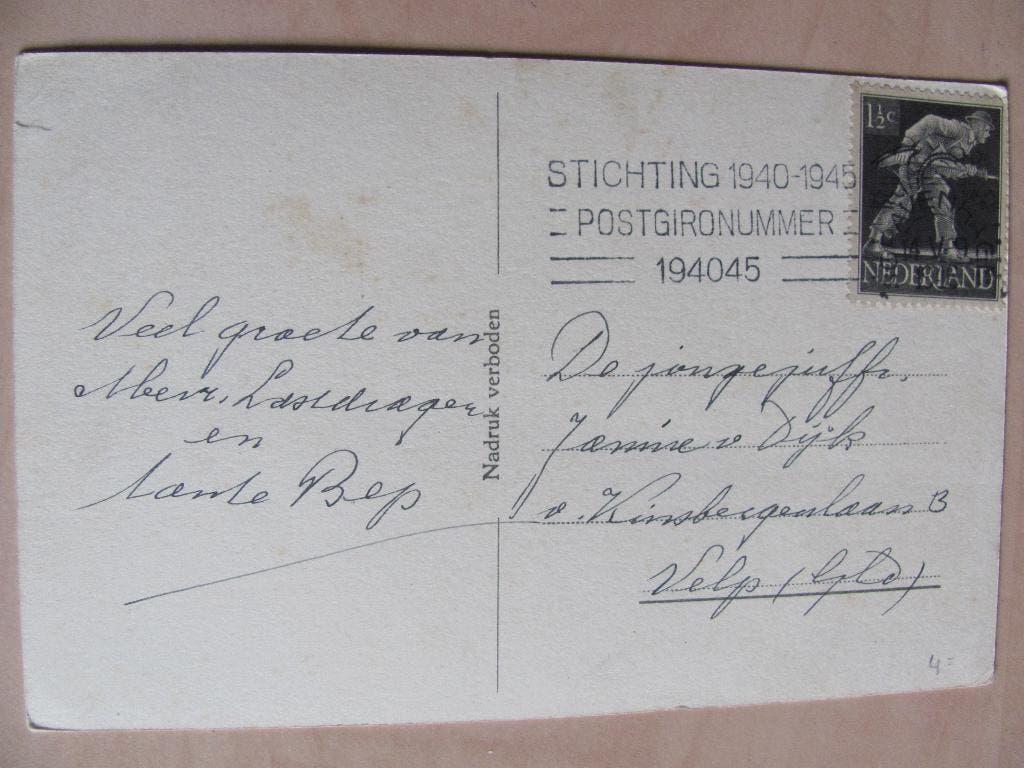 Veel groete van
Mevr. Lastdrager
en
tante Bep
Nadruk verboden
STICHTING 1940-1945
POSTGIRONUMMER
194045
1½c
NEDERLAND
De jongejuffr.
Janine v Dijk
v. Kinsbergenlaan 13
Velp (Gld)
4=